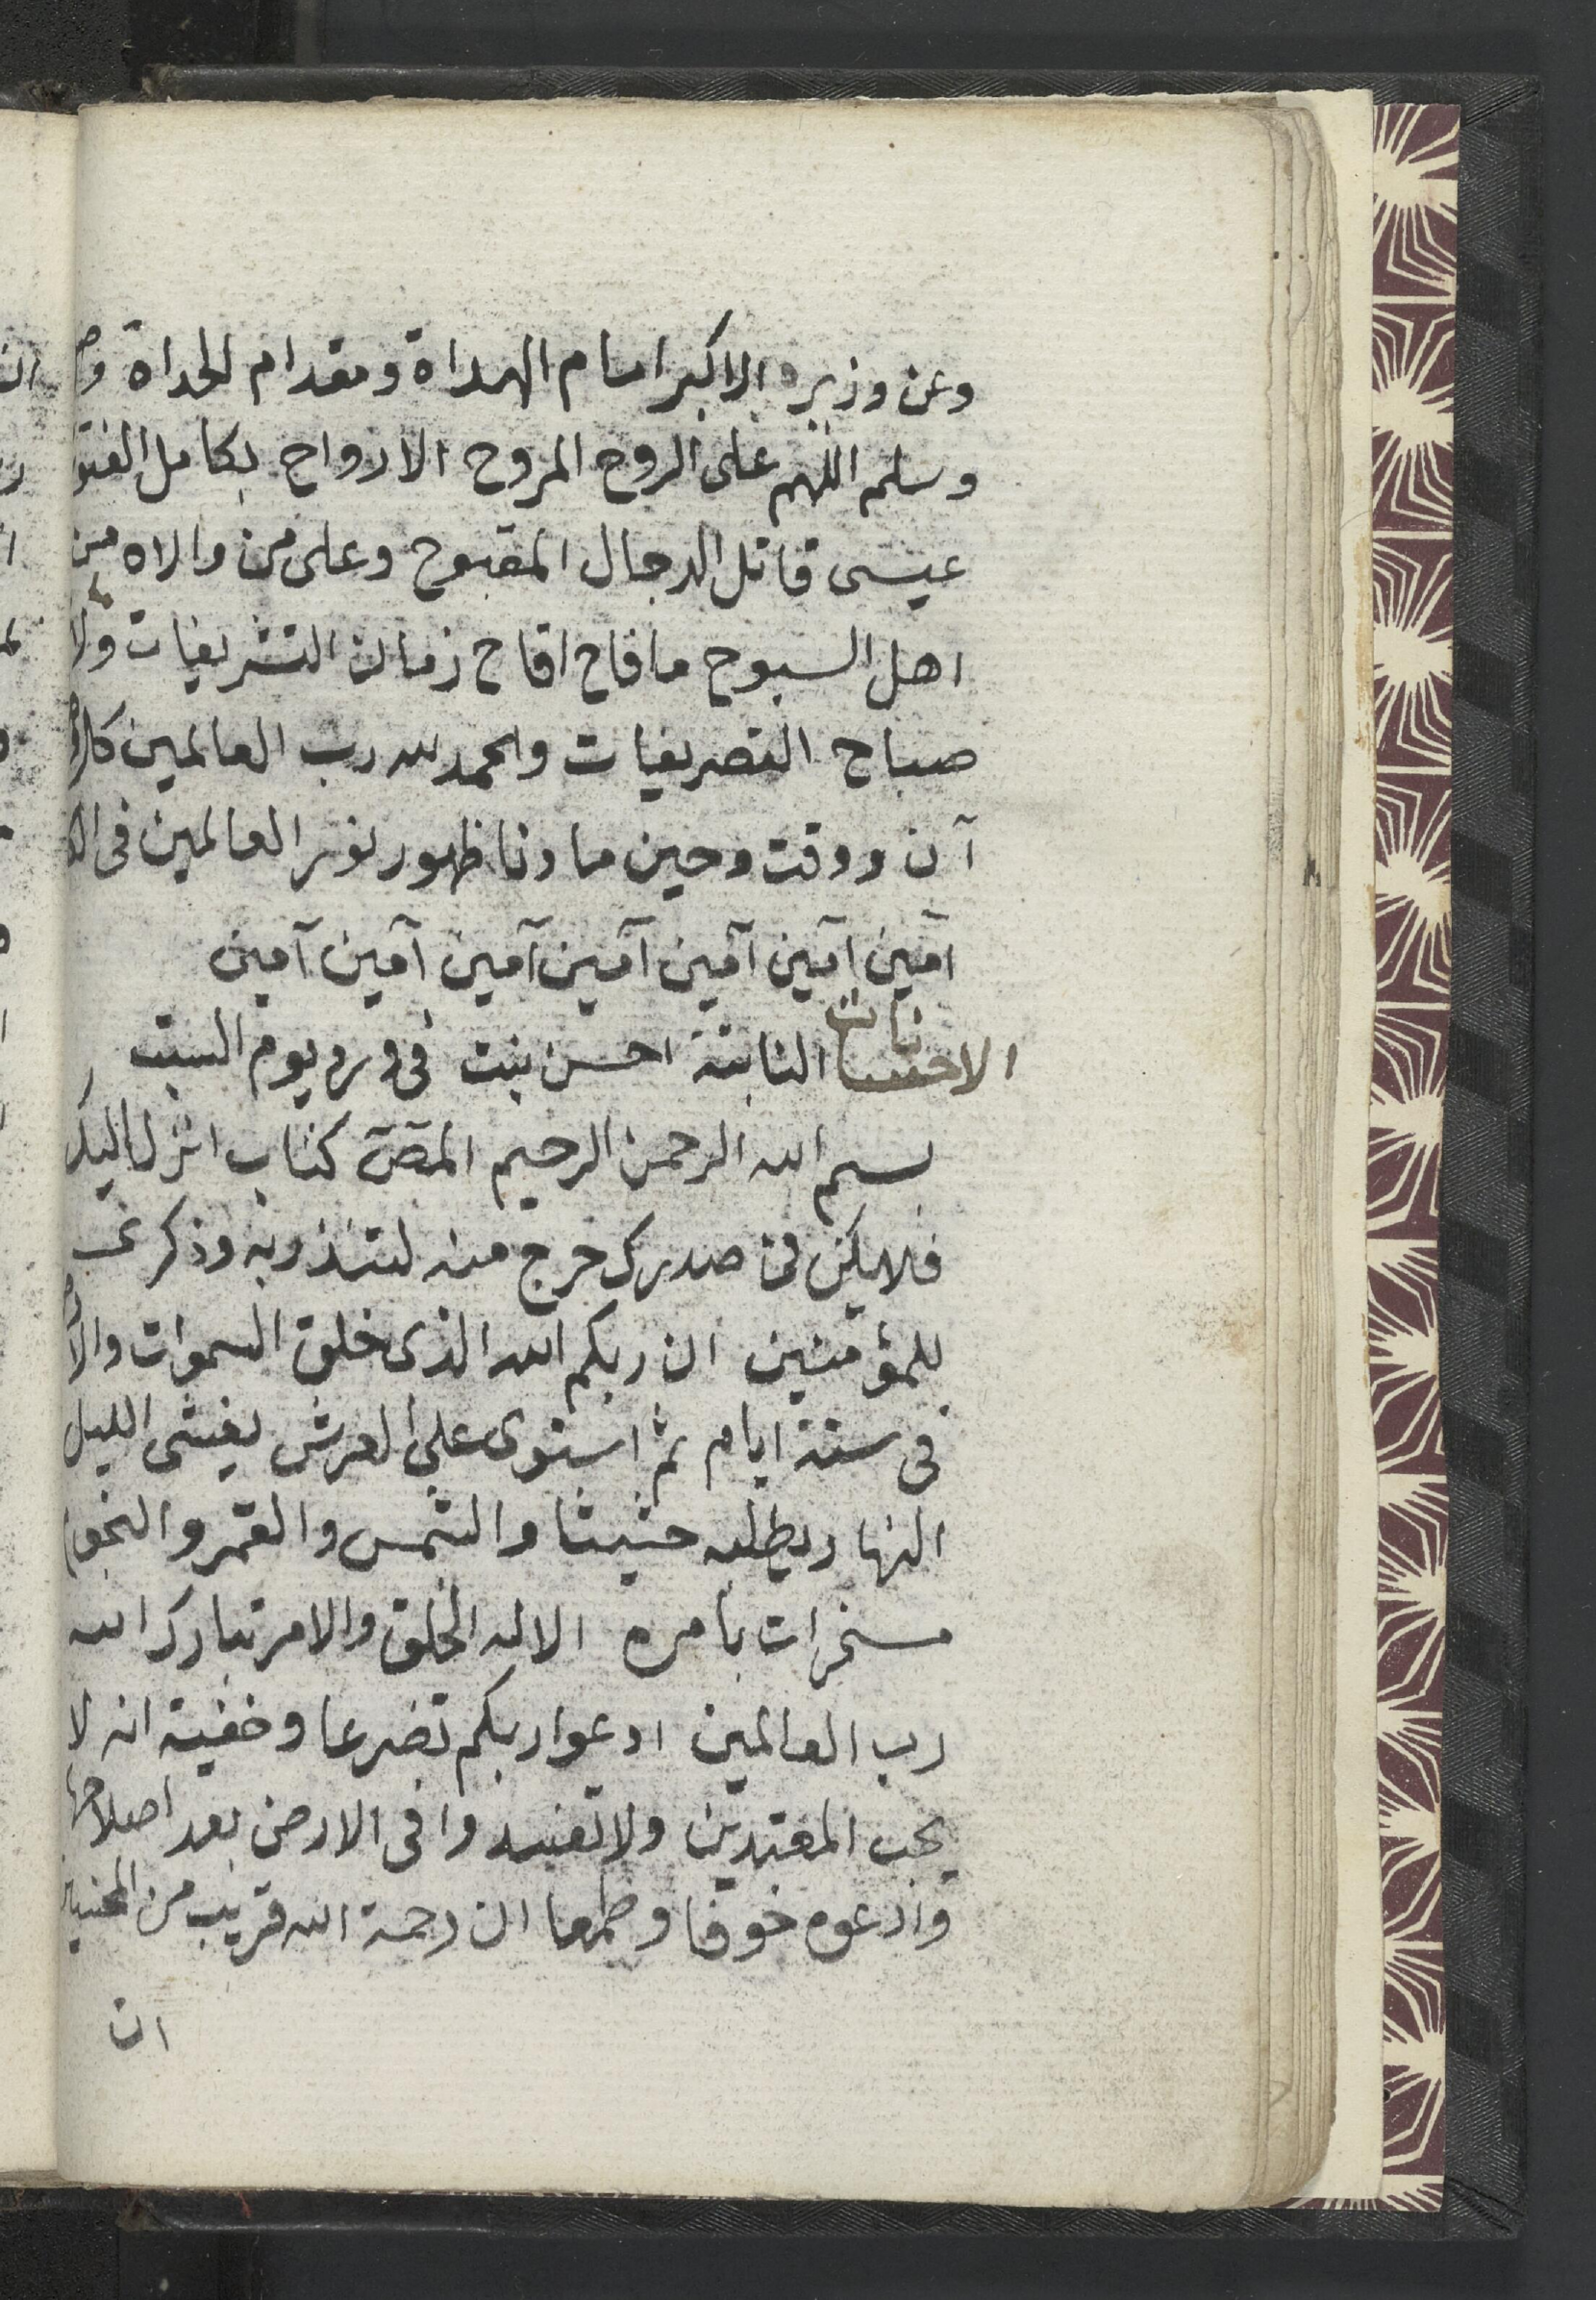 وعن وزيره الاكبر امام الهداة ومقدام الحداة وص
وسلم اللهم على الروح المروح الارواح بكامل الفتو
عيسى قاتل الدجال المقبوح وعلى من والاه من
اهل السبوح ما فاح اقاح زمان التشريفات ولا
صباح التصريفيات والحمد لله رب العالمين كل
آن ووقت وحين ما دنا ظهور نور العالمين فى
آمين آمين آمين آمين آمين آمين آمين
الاحسانات الثابتة احسن بنت فى ورد يوم السبت
بسم الله الرحمن الرحيم المص كتاب انزل اليك
فلا يكن فى صدرك حرج منه لتنذر به وذكرى
للمؤمنين ان ربكم الله الذى خلق السموات والارض
فى ستة ايام ثم استوى على العرش يغشى الليل
النهار يطلبه حثيثا والشمس والقمر والنجوم
مسخرات بامره الا له الخلق والامر تبارك الله
رب العالمين ادعوا ربكم تضرعا وخفية انه لا
يحب المعتدين ولا تفسدوا فى الارض بعد اصلاحها
وادعوه خوفا وطمعا ان رحمة الله قريب من المحسنين
ان